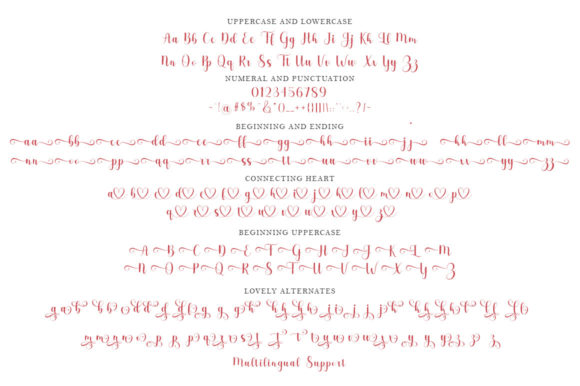 UPPERCASE AND LOWERCASE
Aa Bb Cc Dd Ee Ff Gg Hh Ii Jj Kk Ll Mm
Nn Oo Pp Qq Rr Ss Tt Uu Vv Ww Xx Yy Zz
NUMERAL AND PUNCTUATION
0123456789
BEGINNING AND ENDING
aa bb cc dd ee ff gg hh ii jj kk ll mm
nn oo pp qq rr ss tt uu vv ww xx yy zz
CONNECTING HEART
a♡ b♡ c♡ d♡ e♡ f♡ g♡ h♡ i♡ j♡ k♡ l♡ m♡ n♡ o♡ p♡
q♡ r♡ s♡ t♡ u♡ v♡ w♡ x♡ y♡ z♡
BEGINNING UPPERCASE
A B C D E F G H I J K L M
N O P Q R S T U V W X Y Z
LOVELY ALTERNATES
Multilingual Support